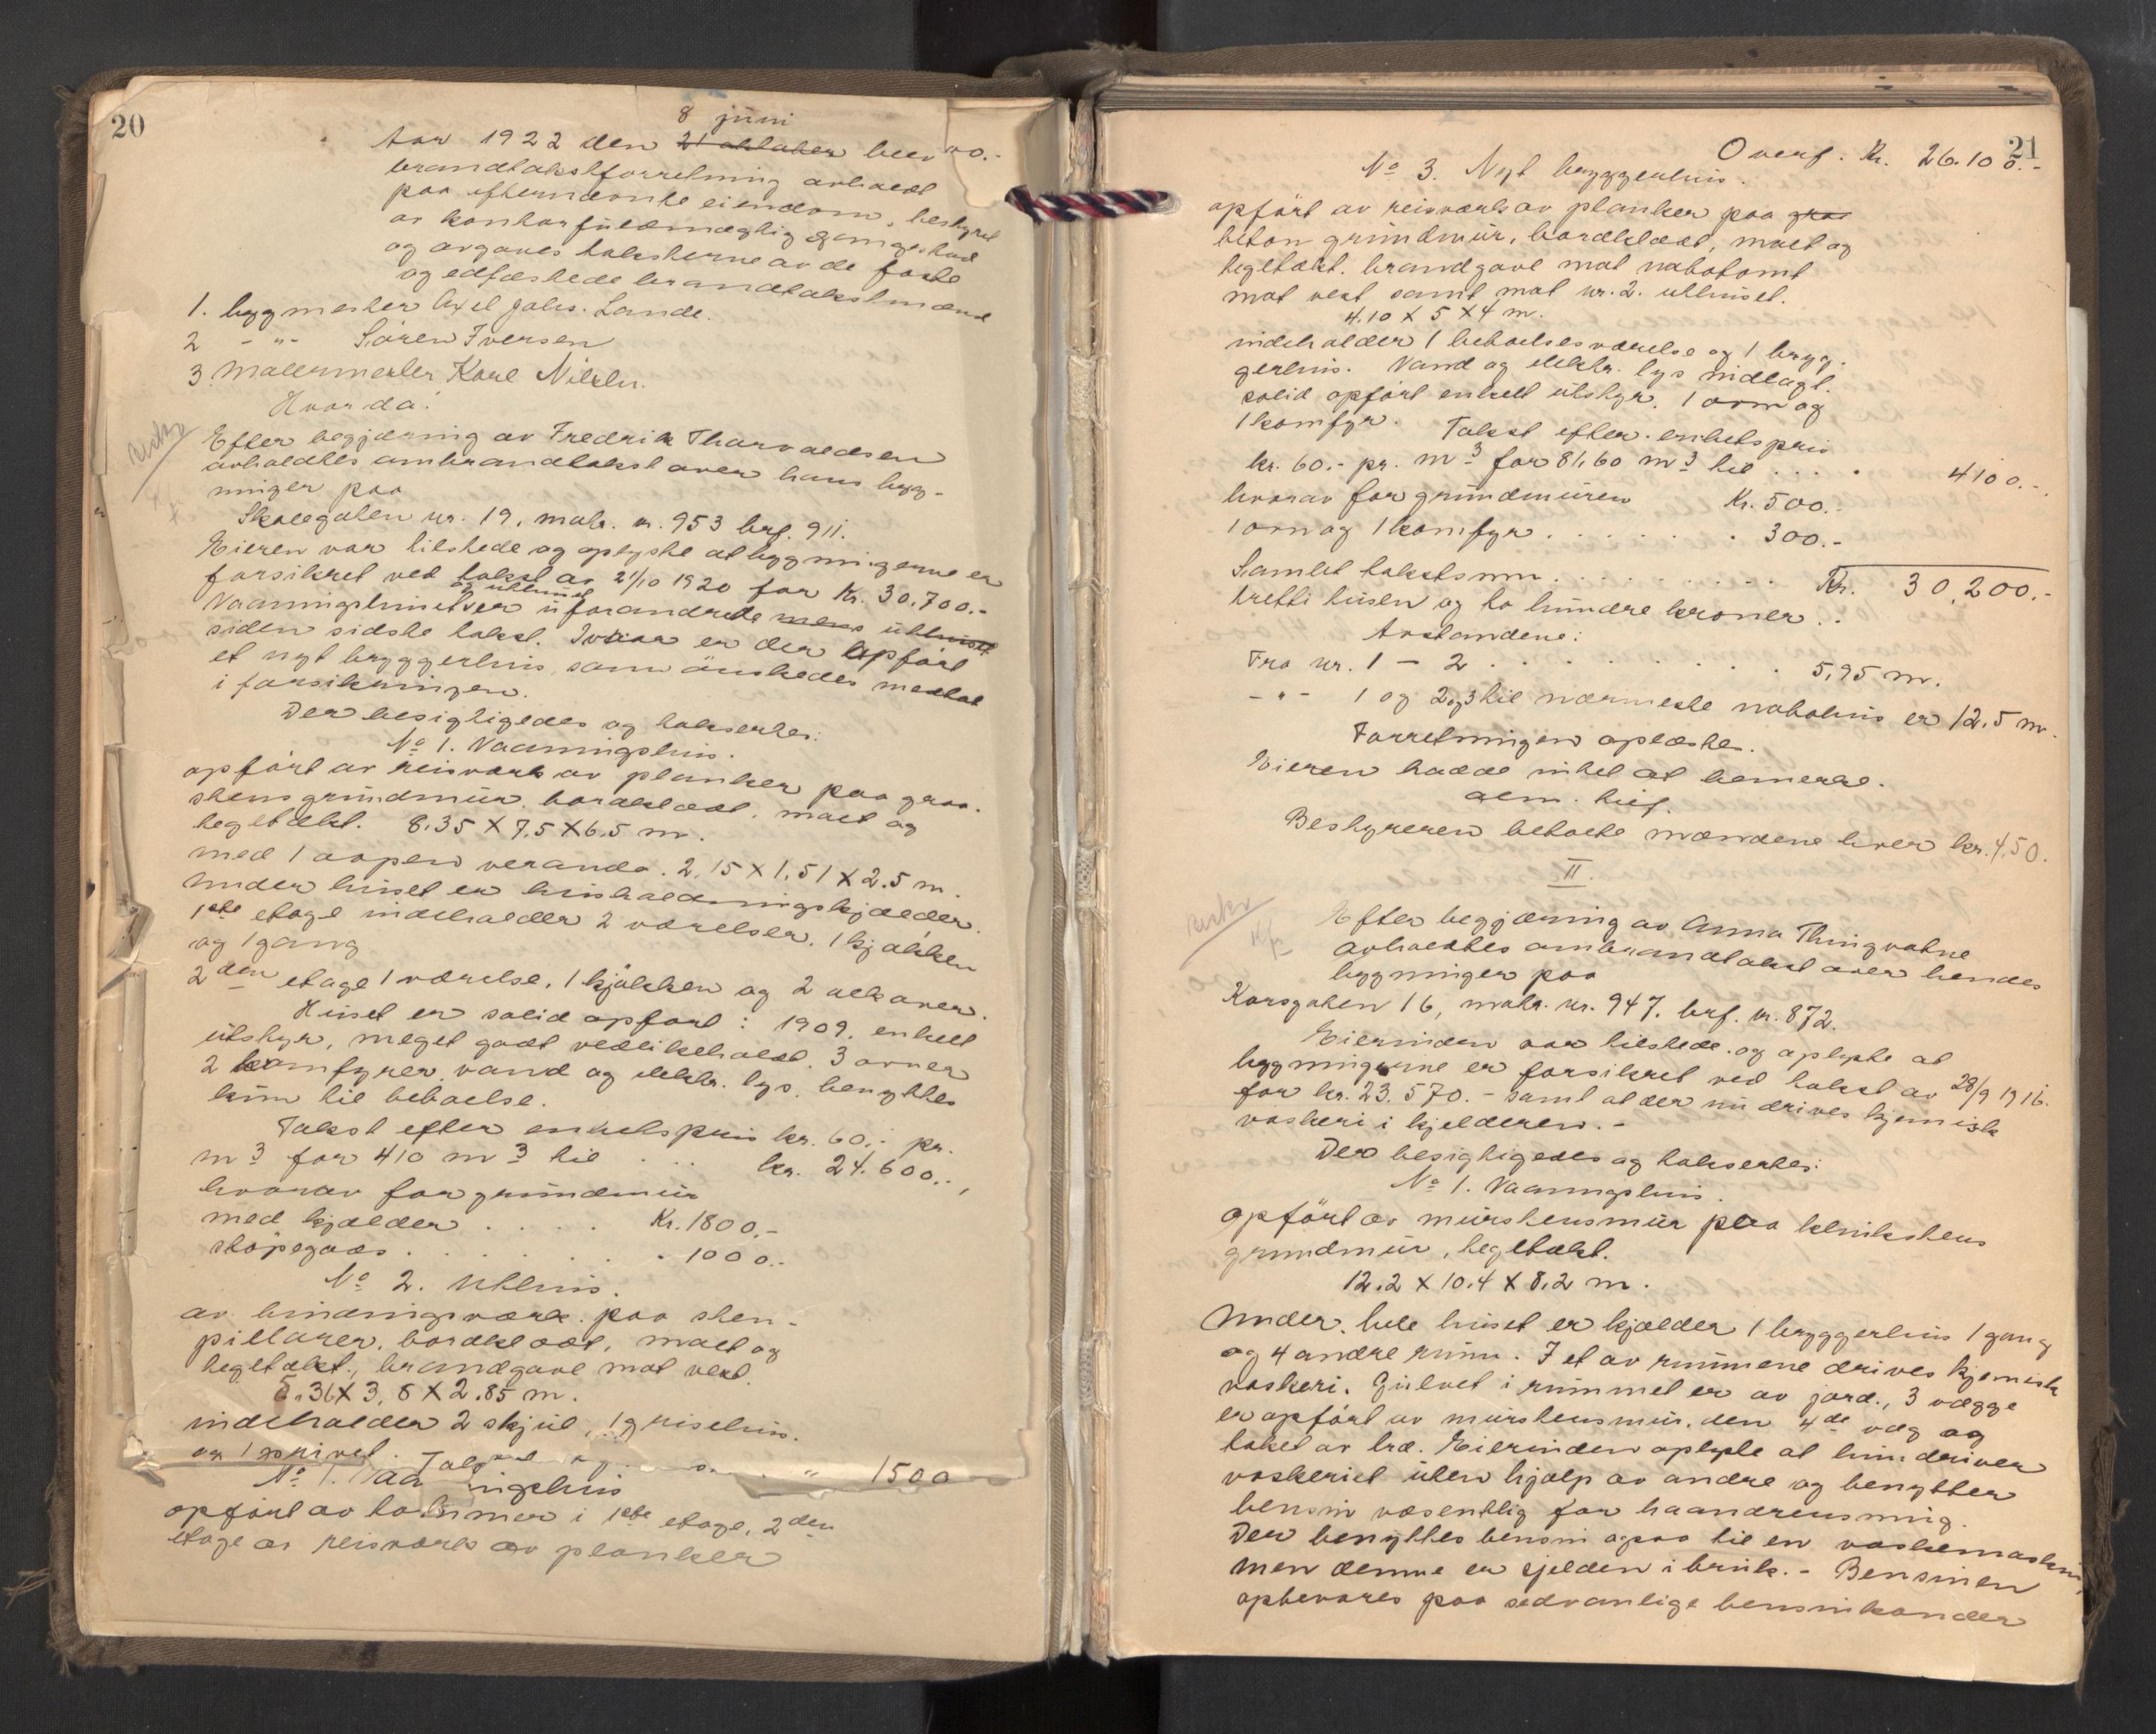 20
8 juni
Aar 1922 den 21 oktober blev
brandtakstforretning avholdt
paa efternævnte eiendom, bestyret
av kontorfuldmægtig
og avgaves taksterne av de faste
og edfæstede brandtakstmænd
1. byggmester Axel Johs. Lande.
2 - " - Sören Iversen
3. Malermester Karl Nilsen.
Hvorda:
Efter begjæring av Fredrik Thorvaldsen
avholdtes ombrandtakst over hans byg-
ninger paa
Skolegaten nr. 19, matr. nr. 953 brf. 911.
Eieren var tilstede og oplyste at bygningerne er
forsikret ved takst av 21/10 1920 for Kr. 30.700.-
og uthuset
Vaaningshuset er uforandrede mens uthuset
siden sidste takst. Ivaar er der opfört
et nyt bryggerhus, som önskedes medtat
i forsikringen.
Der besigtigedes og takseertes:
No 1. Vaaningshus.
opfört av reisverk av planker paa graa-
stensgrundmur, bordklædt, malt og
tegltækt. 8,35 X 7,5 X 6,5 m.
med 1 aapen veranda. 2,15 X 1,51 X 2.5 m.
Under huset er husholdningskjælder.
1ste etage indeholder 2 værelser, 1 kjökken
og 1 gang
2den etage 1 værelse, 1 kjökken og 2 alkover.
Huset er solid opfört i 1909, enkelt
utstyr, meget godt vedlikeholdt. 3 ovner
2 komfyrer, vand og elektr. lys, benyttes
kun til beboelse.
Takst efter enhetspris kr. 60,- pr.
m3 for 410 m3 til ... kr. 24.600.-,
hvorav for grundmur
med kjælder . . . . Kr. 1800,-
støpegods . . . . . . . 1000.-
No 2. Uthus.
av bindingsværk paa sten-
pillarer, bordklædt, malt og
tegltækt, brandgavl mot vest.
5.36 X 3,8 X 2.85 m.
indeholder 2 skjul, 1 grisehus.
og 1 privet. " 1500
No 1. Vaaningshus
opfört av tömmer i 1ste etage, 2den
etage av reisværk av planker
21
Overf. Kr. 26.100.-
No 3. Nyt bryggerhus.
opfört av reisværk av planker paa graa
beton grundmur, bordklædt, malt og
tegltækt. brandgavl mot nabotomt
mot vest samt mot nr. 2. uthuset.
4.10 X 5 X 4 m.
indeholder 1 beboelsesværelse og 1 bryg-
gerhus. Vand og elektr. lys indlagt.
solid opfört enkelt utstyr. 1 ovn og
1 komfyr. Takst efter enhetspris
kr. 60.- pr. m3 for 81,60 m3 til . . . . 4100.-
hvorav for grundmuren Kr. 500.-
1 ovn og 1 komfyr . . . . . . . 300.-
Samlet takstsum . . . . . . . . . . Kr. 30,200.-
tretti tusen og to hundre kroner . .
Avstandene:
Fra nr. 1 - 2 . . . . . . . . . . 5,95 m.
- " - 1 og 2, og 3 til nærmeste nabohus er 12.5 m.
Forretningen oplæstes.
Eieren hadde intet at bemerke.
alm. tilf.
Bestyreren betalte mændene hver kr. 4,50.
II.
Efter begjæring av Anna Thingvatne
avholdtes ombrandtakst over hendes
bygninger paa
Korsgaten 16, matr. nr. 947. brf. nr. 872.
Eierinden var tilstede og oplyste at
bygningerne er forsikret ved takst av 28/9 1916.
for kr. 23.570.- samt at der nu drives kjemisk
vaskeri i kjelderen.-
Der besigtigedes og takseertes:
No 1. Vaaningshus.
opfört av murstensmur paa klinkstens
grundmur, tegltækt.
12.2 X 10.4 X 8.2 m.
Under hele huset er kjælder 1 bryggerhus 1 gang
og 4 andre rum. I et av rummene drives kjemisk
vaskeri. Gulvet i rummet er av jord., 3 vægge
er opfört av murstensmur, den 4de væg og
taket av træ. Eierinden oplyste at hun driver
vaskeriet uten hjælp av andre og benytter
bensin væsentlig for haandrensning.
Der benyttes bensin ogsaa til en vaskemaskin,
men denne er sjelden i bruk.- Bensinen
opbevares paa sedvanlige bensinkander